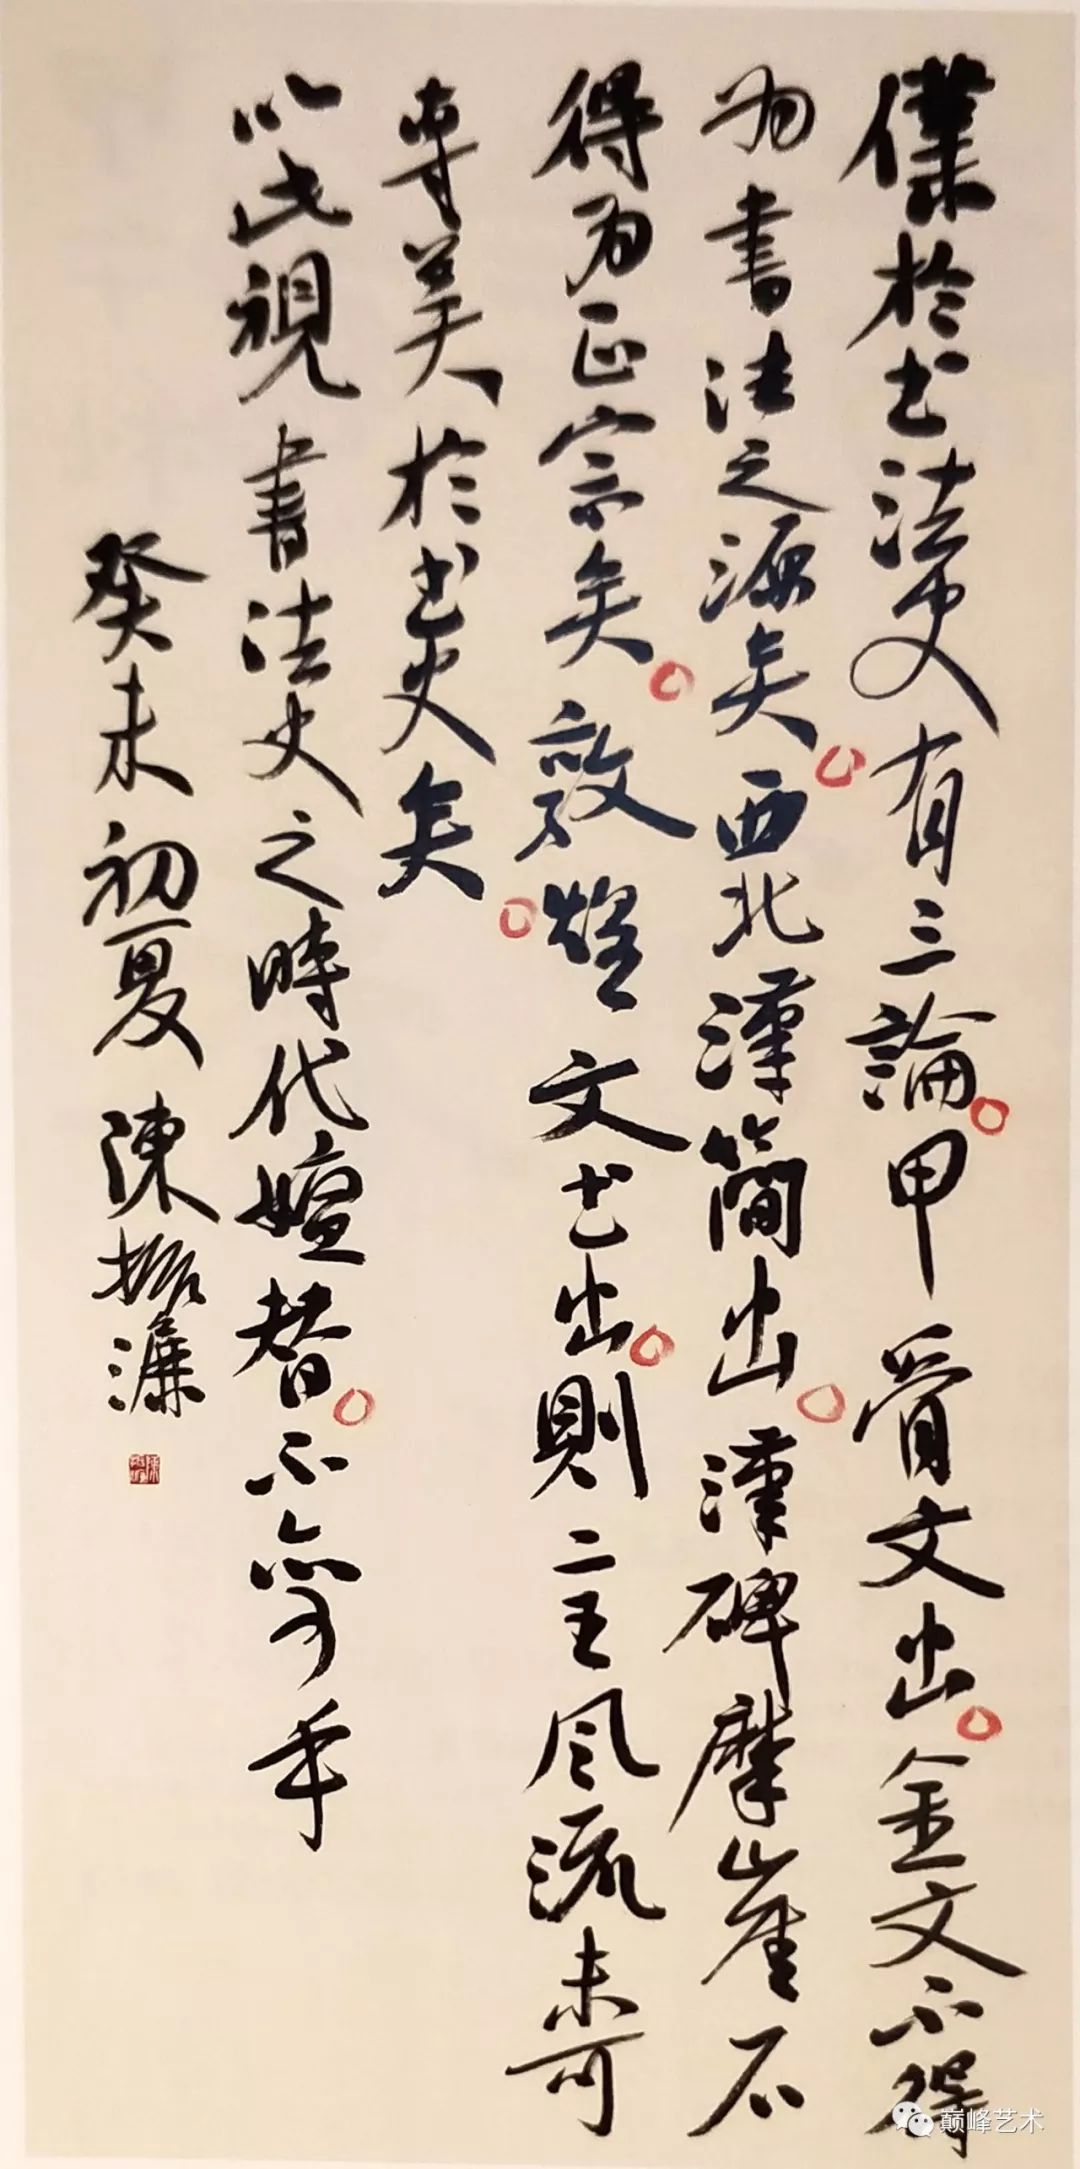 僕於书法史有三論甲骨文出金文不得
为書法之源矣西北漢簡出漢碑摩崖不
得为正宗矣敦煌文书出則二王风流未可
專美於书史矣
以此視書法史之時代嬗替不亦可乎
癸未初夏陳振濂
巅峰艺术